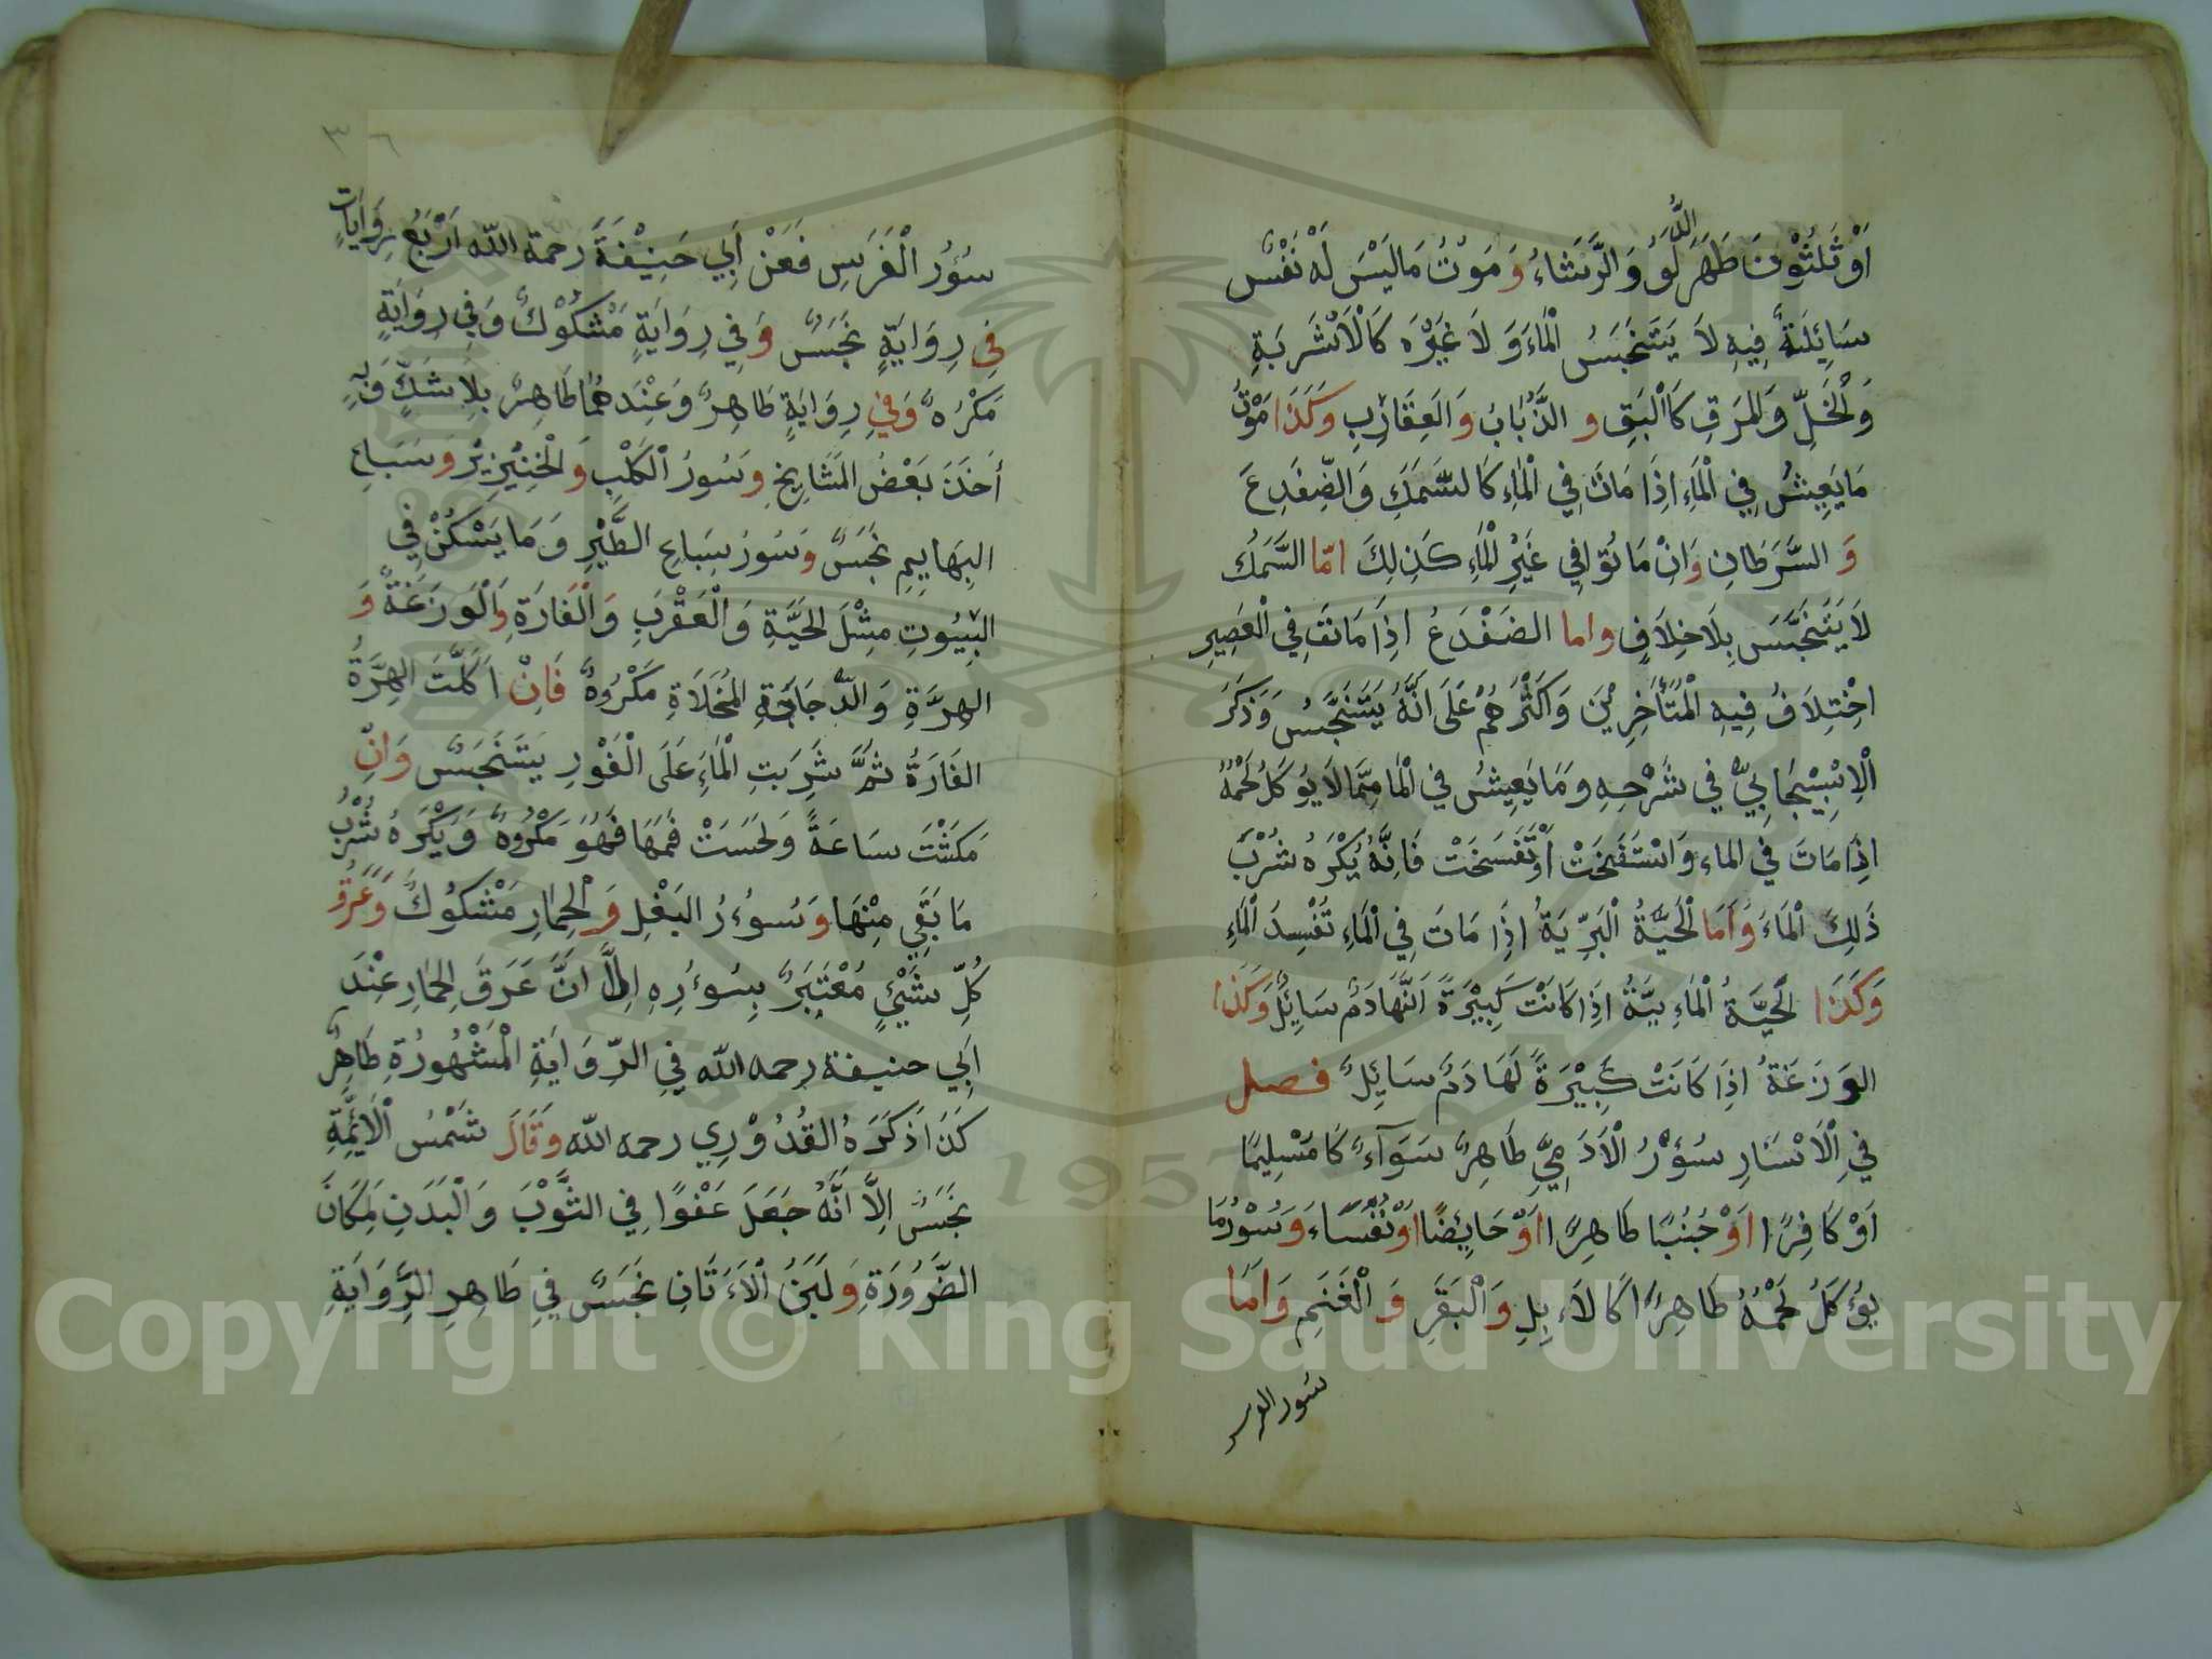 اَوْ ثَلٰثُوْنَ طَهَرَ الدَّلْوُ وَالرَّشَاءُ وَمَوْتُ مَا لَيْسَ لَهُ نَفْسٌ
سَائِلَةٌ فِيهِ لَا يَتَنَجَّسُ الْمَاءَ وَلَا غَيْرَهُ كَالْاَشْرَبَةِ
وَالْخَلِّ وَالْمَرَقِ كَالْبَقِّ و الذُّبَابُ وَالعَقَارِبِ وَكَذَا مَوْتُ
مَا يَعِيشُ فِي الْمَاءِ اِذَا مَاتَ فِي الْمَاءِ كَالسَّمَكِ وَالضِّفْدِعَ
وَ السَّرَطَانِ وَاِنْ مَاتُوا فِي غَيْرِ الْمَاءِ كَذٰلِكَ امّا السَّمَكُ
لَا يَتَنَجَّسَ بِلَا خِلَافٍ واما الضفْدَعُ اِذَا مَاتَ فِي الْعَصِيرِ
اخْتِلَافُ فِيهِ الْمُتَأَخِرِيْنَ وَاَكْثَرُهُمْ عَلَى اَنَّهُ يَتَنَجَّسُ وَذَكَرَ
الْاِسْبِيْجَابِيُّ فِي شَرْحِهِ وَمَا يَعِيشُ فِي الْمَا مِمَّا لَا يُوكَلُ لَحْمُهُ
اِذَا مَاتَ فِي الماء وَانْتَفَخَتْ اَوْ تَفَسَخَتْ فَاِنَّهُ يُكْرَهُ شُرْبَ
ذَلِكَ الْمَاءَ وَاَمَا الْحَيَّةُ الْبَرِّيَةُ اِذَا مَاتَ فِي الْمَاءِ تُفْسِدَ الْمَاءِ
وَكَذَا الْحَيَّةُ الْمَاءِيَّةُ اِذَا كَانَتْ كَبِيْرَةً لَهَا دَمٌ سَايِلٌ وَكَذَا
الوَزَغَةُ اِذَا كَانَتْ كَبِيْرَةً لَهَا دَمٌ سَائِلٌ فصل
فِي الْاَسْارِ سُؤْرُ الْاَدَمِيِّ طَاهِرٌ سَوَآءٌ كَا مُسْلِيمًا
اَوْ كَافِرًا اَوْ جُنُبًا طَاهِرًا اَوْ حَايِضًا اَوْ نُفَسَاءَ وَسُوْرُ مَا
يُؤْكَلُ لَحْمُهُ طَاهِرًا كَالاَءبِلِ وَالْبَقَرِ وَ الْغَنَمِ وَاَمَا
سور الفرس
٣٦
سُؤُرُ الْفَرَسِ فَعَنْ اَبِي حَنِيْفَةَ رحمة الله اَرْبَعُ رِوَايَاتٍ
فِي رِوَايَةٍ نَجَسٌ وَفِي رِوَايَةٍ مَشْكُوْكٌ وَفِي رِوَايَةٍ
مَكْرُهٌ وَفِي رِوَايَةٍ طَاهِرٌ وَعِنْدَهُمَا طَاهِرٌ بِلَا شَكٍّ وَبِهِ
اَخَذَ بَعْضُ الْمَشَايِخِ وَسُورُ الْكَلْبِ وَالْخِنْزِيْرِ وَسَبَاعِ
البَهَايِمِ نَجَسٌ وَسُورُ سِبَاعِ الطَّيْرِ وَمَا يَسْكُنُ فِي
البُيُوتِ مِثْلَ الْحَيَّةِ وَالْعَقْرَبِ وَالْفَارَةِ وَالْوَرَزَغَةُ وَ
الهِرَّةِ وَالدَّجَاجَةِ الْمُخَلَاةِ مَكْرُوهٌ فَاِنْ اَكَلَتَ الهِرَّةُ
الفَارَةُ ثُمَّ شَرِبَتِ الْمَاءِ عَلَى الْفَوْرِ يَتَنَجَسُ وَاِنْ
مَكَثَتْ سَاعَةً وَلَحَسَتْ فَمَهَا فَهُوَ مَكْرُوهٌ وَيُكْرَهُ شُرْبُ
مَا بَقِي مِنْهَا وَسُوءرُ البَغْلِ وَالْحِمَارِ مَشْكُوكٌ وَعَرَقُ
كُلِّ شَيْئٍ مُعْتَبَرٌ بِسُوءرِهِ اِلَّا اَنَّ عَرَقَ الْحِمَارِ عِنْدَ
اَبِي حنيفة رحمه الله فِي الرِّوَايَةِ الْمَشْهُورَةِ طَاهِرٌ
كَذَا ذَكَرَهُ القُدُوْرِي رحمه الله وَقَالَ شَمْسُ الْاَئِمَّةِ
نَجَسٌ اِلَّا اَنَّهُ جَعَلَ عَفْوًا فِي الثَّوْبَ وَالْبَدَنِ لِمَكَانَ
الضَّرُورَةِ وَلَبَنُ الْاَءتَانِ نَجَسٌ فِي ظَاهِرِ الرِّوَايَةِ
Copyright © King Saud University
1957